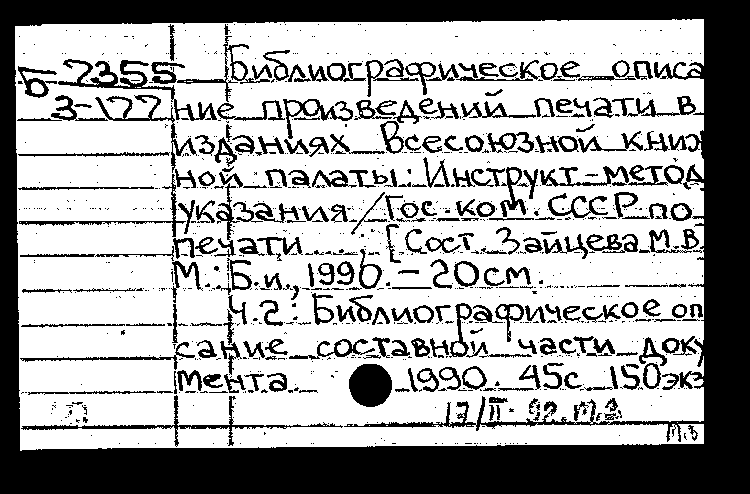 Б-7355 Библиографическое описа
З-177 ние произведений печати в
изданиях Всесоюзной книж
ной палаты: Инструкт-метод
указания / Гос. ком. СССР по
печати...; [Сост. Зайцева М.В.
М.: Б.и., 1990. – 20 см.
Ч.2: Библиографическое оп
сание составной части доку
мента 1990. 45с 150экз
17/II-92. М.З
М.З